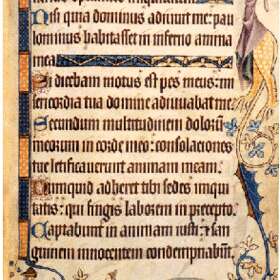 Nisi quia dominus adiuvit me: pau
lominus habitasset in inferno anima
mea
Si dicebam motus est pes meus: mi
sericordia tua domine adiuvabat me.
Secundum multitudinem dolorum
meorum in corde meo: consolaciones
tue letificaverunt animam meam.
Numquid adheret tibi sedes iniqui
tatis: qui fingis laborem in precepto.
Captabunt in animam iusti: & san
guinem innocentem condempnabunt